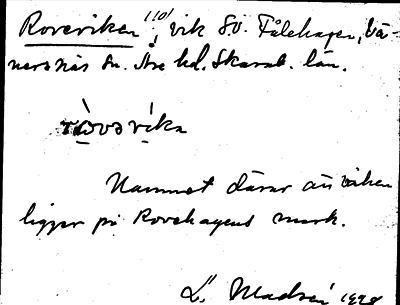 Roreviken 1101, vik SV. Fålehagen, Vä-
nersnäs sn. Åse hd. Skarab. län.
Namnet därav att viken
ligger på Rorehagens mark.
L. Madsén 1928